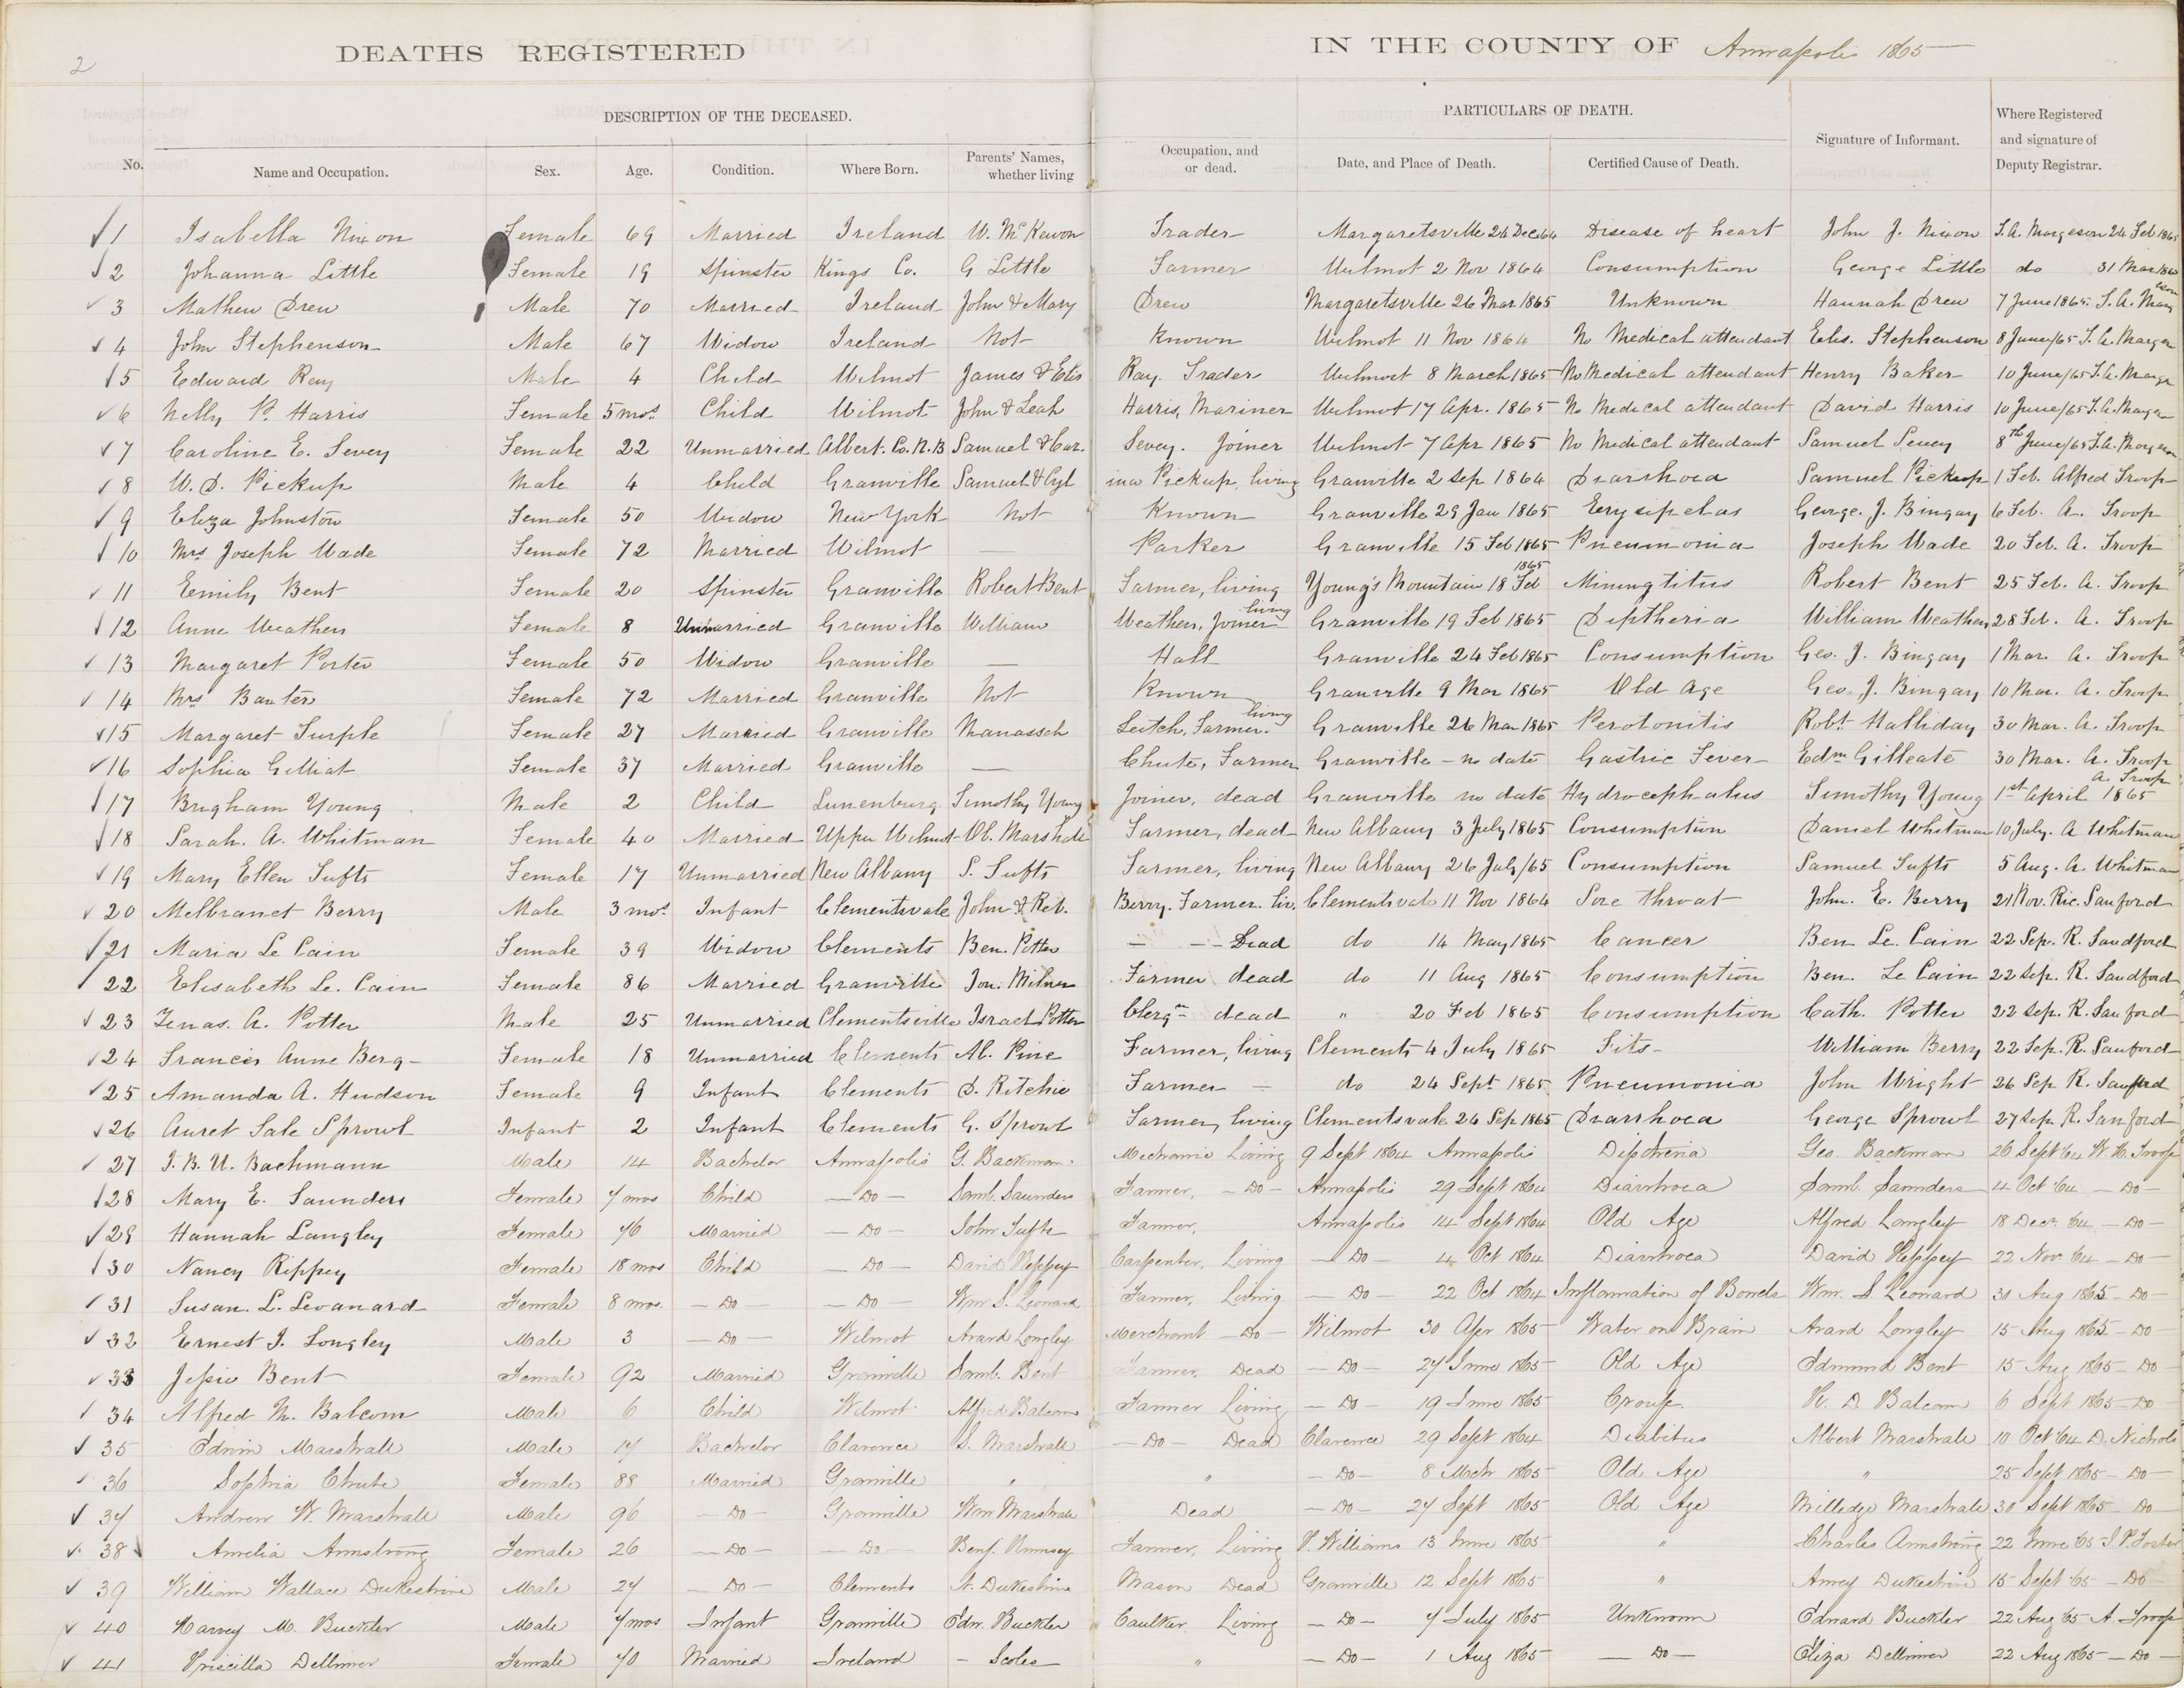 2
DEATHS REGISTERED IN THE COUNTY OF Annapolis 1865
DESCRIPTION OF THE DECEASED. PARTICULARS OF DEATH.
No. Name and Occupation. Sex. Age. Condition. Where Born. Parents' Names, whether living Occupation, and or dead. Date, and Place of Death. Certified Cause of Death. Signature of Informant. Where Registered and signature of Deputy Registrar.
1 Isabella Nixon Female 69 Married Ireland W. McKewon Trader Margaretsville 24 Dec 64 Disease of heart John J. Nixon 24 Feb 1865
2 Johanna Little Female 19 Spinster Kings Co. G Little Farmer Wilmot 2 Nov 1864 Consumption George Little do 31 Mar 1865
3 Mathew Drew Male 70 Married Ireland John & Mary Drew Margaretsville 26 Mar 1865 Unknown Hannah Drew 7 June 1865.
4 John Stephenson Male 67 Widow Ireland Not Known Wilmot 11 Nov 1864 No Medical attendant Elis. Stephenson 8 June/65
5 Edward Ray Male 4 Child Wilmot James & Elis Ray. Trader Wilmot 8 March 1865 No Medical attendant Henry Baker 10 June/65
6 Nelly P. Harris Female 5 mos. Child Wilmot John & Leah Harris, Mariner Wilmot 17 Apr. 1865 No Medical attendant David Harris 10 June/65
7 Caroline E. Sevey Female 22 Unmarried Albert. Co. N.B Samuel & Car. Sevey. Joiner Wilmot 7 Apr 1865 No Medical attendant Samuel Sevey 8th June/65
8 W. D. Pickup Male 4 Child Granville Samuel & Cyl ina Pickup, living Granville 2 Sep 1864 Diarrhoea Samuel Pickup 1 Feb. Alfred Troop
9 Eliza Johnston Female 50 Widow New York Not Known Granville 29 Jan 1865 Erysipelas George. J. Bingay 6 Feb. A. Troop
10 Mrs Joseph Wade Female 72 Married Wilmot — Parker Granville 15 Feb 1865 Pneumonia Joseph Wade 20 Feb. A. Troop
11 Emily Bent Female 20 Spinster Granville Robert Bent Farmer, living Young's Mountain 18 Feb 1865 Miningtitus Robert Bent 25 Feb. A. Troop
12 Anne Weathers Female 8 Unmarried Granville William Weathers, Joiner living Granville 19 Feb 1865 Diptheria William Weathers 28 Feb. A. Troop
13 Margaret Porter Female 50 Widow Granville — Hall Granville 24 Feb 1865 Consumption Geo. J. Bingay 1 Mar. A. Troop
14 Mrs Baxter Female 72 Married Granville Not Known Granville 9 Mar 1865 Old Age Geo. J. Bingay 10 Mar. A. Troop
15 Margaret Turple Female 27 Married Granville Manasseh Leitch, Farmer. living Granville 26 Mar 1865 Perotonitis Robt. Halliday 30 Mar. A. Troop
16 Sophia Gilliat Female 37 Married Granville — Chute, Farmer Granville — no date Gastric Fever Edm Gilleate 30 Mar. A. Troop
17 Brigham Young Male 2 Child Lunenburg Timothy Young Joiner, dead Granville no date Hydrocephalus Timothy Young 1st April 1865 A. Troop
18 Sarah. A. Whitman Female 40 Married Upper Wilmot Ob. Marshall Farmer, dead New Albany 3 July 1865 Consumption Daniel Whitman 10 July. A Whitman
19 Mary Ellen Tufts Female 17 Unmarried New Albany S. Tufts Farmer, living New Albany 26 July/65 Consumption Samuel Tufts 5 Aug. A. Whitman
20 Melbranet Berry Male 3 mos. Infant Clementsvale John & Reb. Berry. Farmer. liv. Clementsvale 11 Nov 1864 Sore throat John. E. Berry 21 Nov. Ric. Sanford
21 Maria Le Cain Female 39 Widow Clements Ben. Potter — — Dead do 14 May 1865 Cancer Ben Le. Cain 22 Sep. R. Sandford
22 Elisabeth Le. Cain Female 86 Married Granville Jon. Milner Farmer dead do 11 Aug 1865 Consumption Ben. Le Cain 22 Sep. R. Sandford
23 Zenas. A. Potter Male 25 Unmarried Clementsville Israel Potter Clergn dead " 20 Feb 1865 Consumption Cath. Potter 22 Sep. R. Sanford
24 Francis Anne Berg Female 18 Unmarried Clements Al. Pine Farmer, living Clements 4 July 1865 Fits William Berry 22 Sep. R. Sanford
25 Amanda A. Hudson Female 9 Infant Clements D. Ritchie Farmer — do 24 Sept 1865 Pneumonia John Wright 26 Sep R. Sanford
26 Auret Sale Sprowl Infant 2 Infant Clements G. Sprowl Farmer, living Clementsvale 24 Sep 1865 Diarrhoea George Sprowl 27 Sep. R. Sanford
27 J. B. U. Bachmann Male 14 Bachelor Annapolis G. Backman Mechanic Living 9 Sept 1864 Annapolis Dipthria Geo. Backman 26 Sept 64 W. H. Troop
28 Mary E. Saunders Female 7 mos Child — Do — Saml. Saunders Farmer, — Do — Annapolis 29 Sept 1864 Diarrhoea Saml. Saunders 4 Oct 64 — Do —
29 Hannah Langley Female 76 Married — Do — John Tufts Farmer, Annapolis 14 Sept 1864 Old Age Alfred Longley 18 Decr. 64 — Do —
30 Nancy Rippey Female 18 mos Child — Do — David Reppey Carpenter, Living — Do — 4 Oct 1864 Diarrhoea David Reppey 22 Nov 64 — Do —
31 Susan. L. Levanard Female 8 mos. — Do — — Do — Wm S. Leonard Farmer, Living — Do — 22 Oct 1864 Inflamation of Bowels Wm. S Leonard 30 Aug 1865 — Do —
32 Ernest J. Longley Male 3 — Do — Wilmot Avard Longley Merchant — Do — Wilmot 30 Apr 1865 Water on Brain Avard Longley 15 Aug 1865 — Do —
33 Jessie Bent Female 92 Married Granville Saml. Bent Farmer, Dead — Do — 27 June 1865 Old Age Edmund Bent 15 Aug 1865 — Do —
34 Alfred M. Balcom Male 6 Child Wilmot Alfred Balcom Farmer Living — Do — 19 June 1865 Croup H. D. Balcom 6 Sept 1865 — Do —
35 Edwin Marshall Male 17 Bachelor Clarence S. Marshall — Do — Dead Clarence 29 Sept 1864 Diabitus Albert Marshall 10 Oct 64 D. Nichols
36 Sophia Chute Female 88 Married Granville " " — Do — 8 Mch 1865 Old Age " 25 Sept 1865 — Do —
37 Andrew W. Marshall Male 96 — Do — Granville Wm Marshall Dead — Do — 27 Sept 1865 Old Age Milledge Marshall 30 Sept 1865 — Do —
38 Amelia Armstrong Female 26 — Do — — Do — Benj. Rumsey Farmer, Living P. Williams 13 June 1865 " Charles Armstrong 22 June 65 Foster
39 William Wallace Dukeshire Male 27 — Do — Clements Dukeshire Mason Dead Granville 12 Sept 1865 " Dukeshire 15 Sept 65 — Do —
40 Harvey M. Buckler Male 7 mos Infant Granville Edw. Buckler Caulker, Living — Do — 7 July 1865 Unknown Edward Buckler 22 Aug 65 A. Troop
41 Priscilla Dellimer Female 70 Married Ireland — Scoles " — Do — 1 Aug 1865 — Do — Eliza Dellimer 22 Aug 1865 — Do —